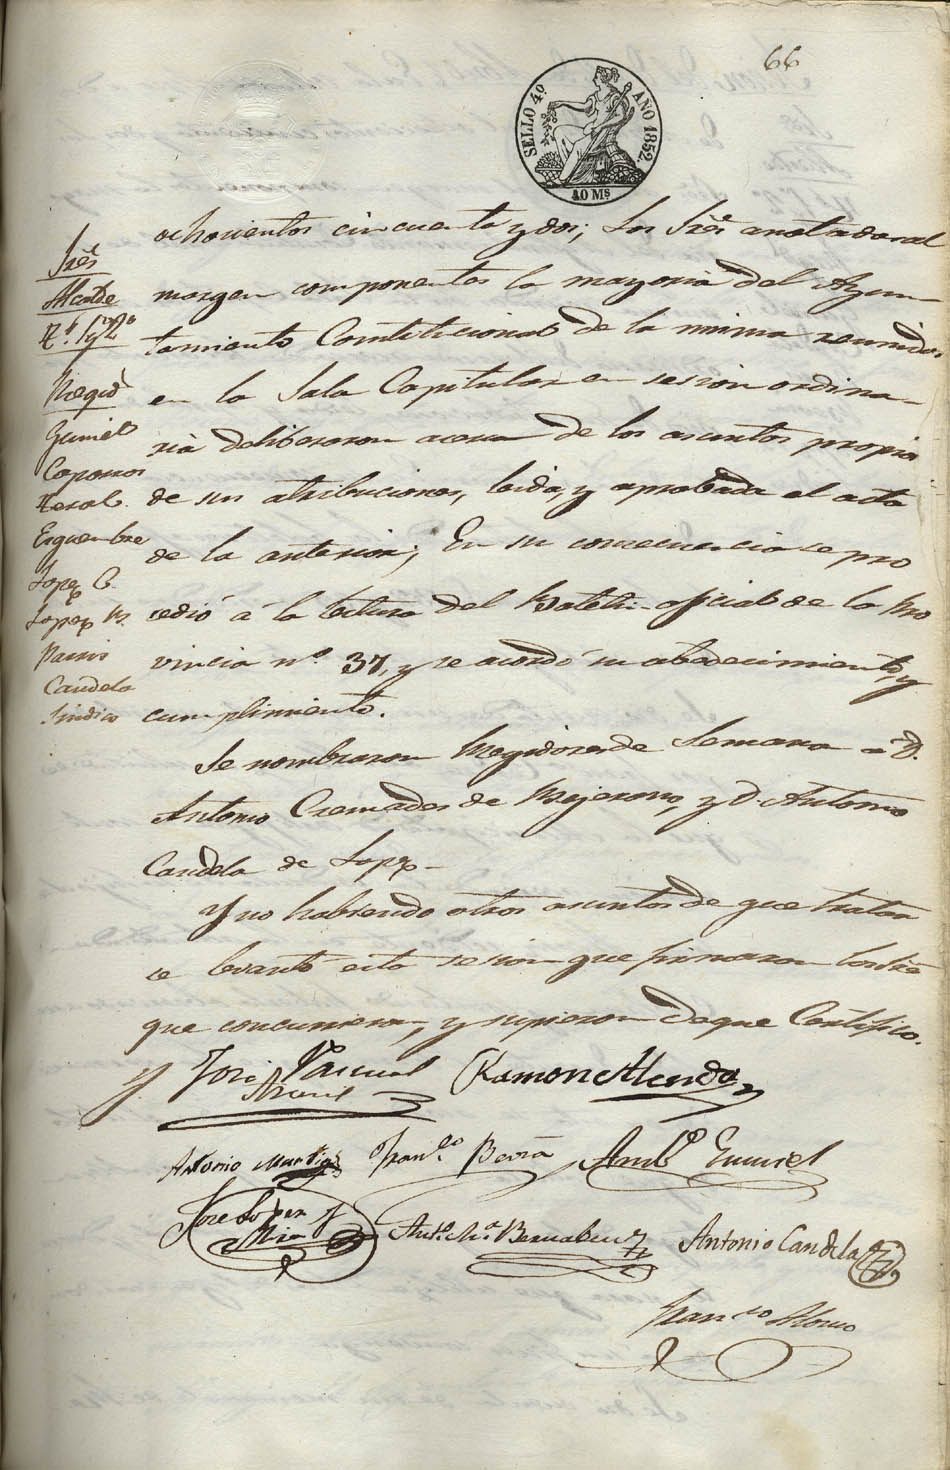 66
SELLO 4º AÑO 1852.
40 Ms
Sres
Alcalde
Rs. 1º y 2º
Regid
Gumiel
Esquembre
Lopez C.
Lopez M.
Candela
Sindico
ochocientos cincuenta y dos; Los Sres anotados al
margen componentes la mayoria del Ayun
tamiento Constitucional de la misma reunidos
en la Sala Capitular en sesion ordina
ria deliberaron acerca de los asuntos propios
de sus atribuciones, leida, y aprobada el acta
de la anterior; En su consecuencia se pro
cedió á la lectura del Boletin oficial de la Pro
vincia nº. 37, y se acordó su obedecimiento, y
cumplimiento.
Se nombraron Regidores de Semana a D.
Antonio Cremades de y D. Antonio
Candela de Lopez
Y no habiendo otros asuntos de que tratar
se levantó esta sesion que firmaron los Sres
que concurrieron, y supieron de que Certifico.
José Pascual
Ramon Alcaraz
Antonio Martinez
Franco
Ambº Gumiel
Jose Lopez
Anto. Ma. Bernabeu
Antonio Candela
Franco Alonso